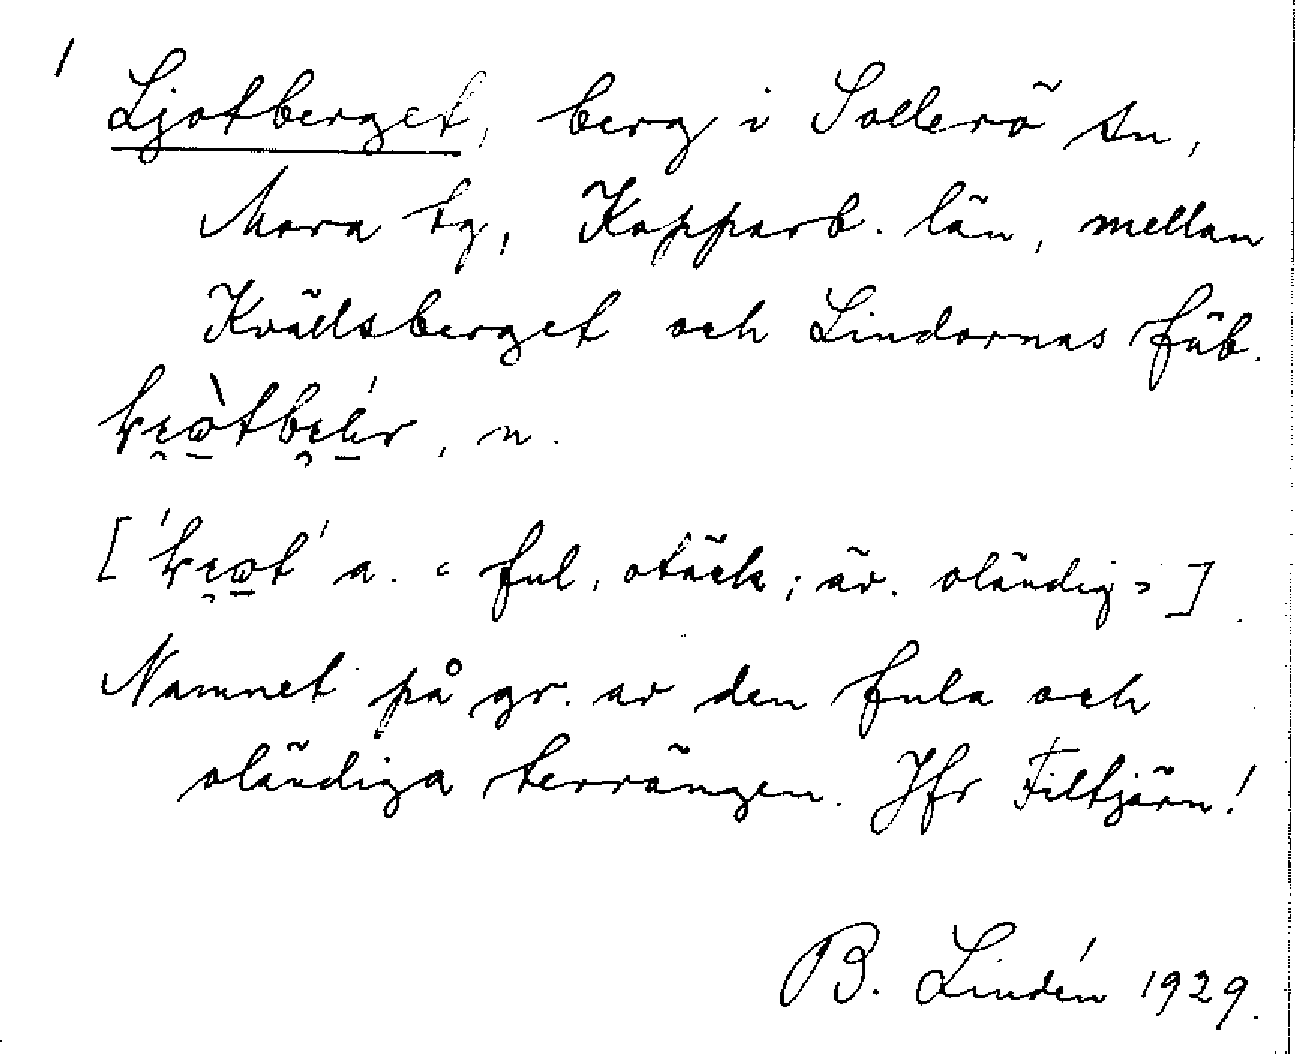 Ljotberget, berg i Sollerö sn,
Mora tg, Kopparb. län, mellan
Kvällsberget och Lindornas fäb.
, n.
[ a. "ful, otäck; äv. oländig" ]
Namnet på gr. av den fula och
oländiga terrängen. Jfr Filtjärn!
B. Lindén 1929.